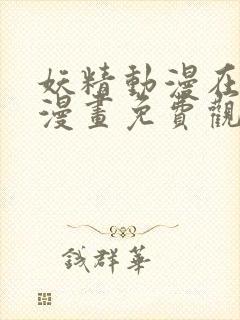 妖精動漫在
漫畫免費觀
錢群華